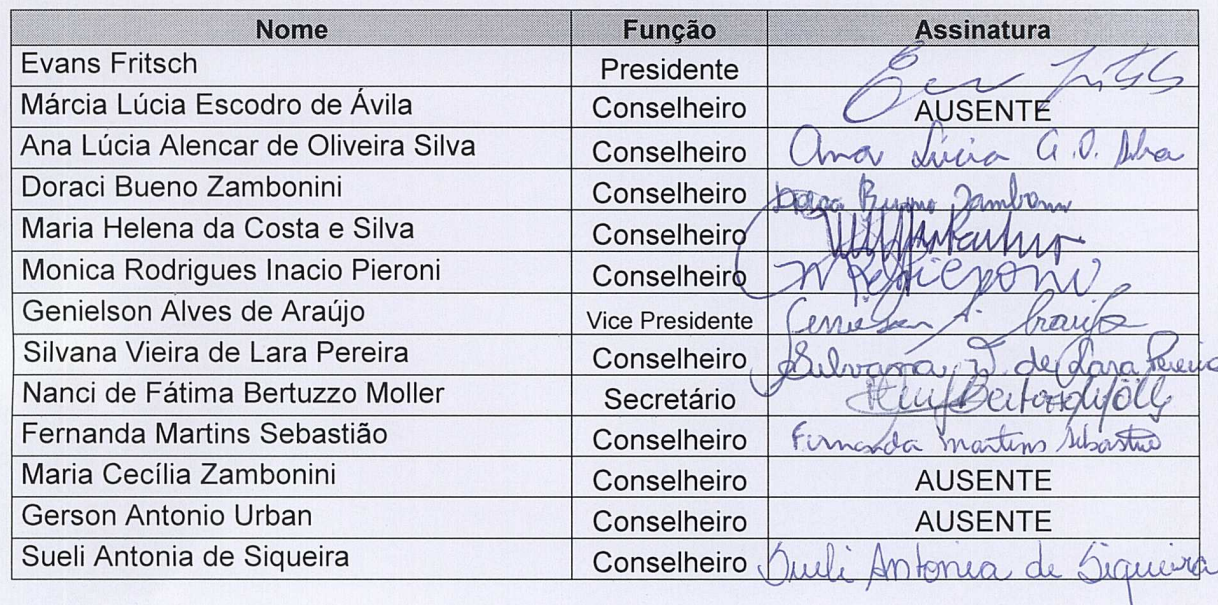 Nome Função Assinatura
Evans Fritsch Presidente
Márcia Lúcia Escodro de Ávila Conselheiro AUSENTE
Ana Lúcia Alencar de Oliveira Silva Conselheiro Ana Lúcia A. O. Silva
Doraci Bueno Zambonini Conselheiro Bueno
Maria Helena da Costa e Silva Conselheiro
Monica Rodrigues Inacio Pieroni Conselheiro
Genielson Alves de Araújo Vice Presidente Genielson A. Araujo
Silvana Vieira de Lara Pereira Conselheiro Silvana V. de Lara Pereira
Nanci de Fátima Bertuzzo Moller Secretário
Fernanda Martins Sebastião Conselheiro Fernanda Martins Sebastião
Maria Cecília Zambonini Conselheiro AUSENTE
Gerson Antonio Urban Conselheiro AUSENTE
Sueli Antonia de Siqueira Conselheiro Sueli Antonia de Siqueira